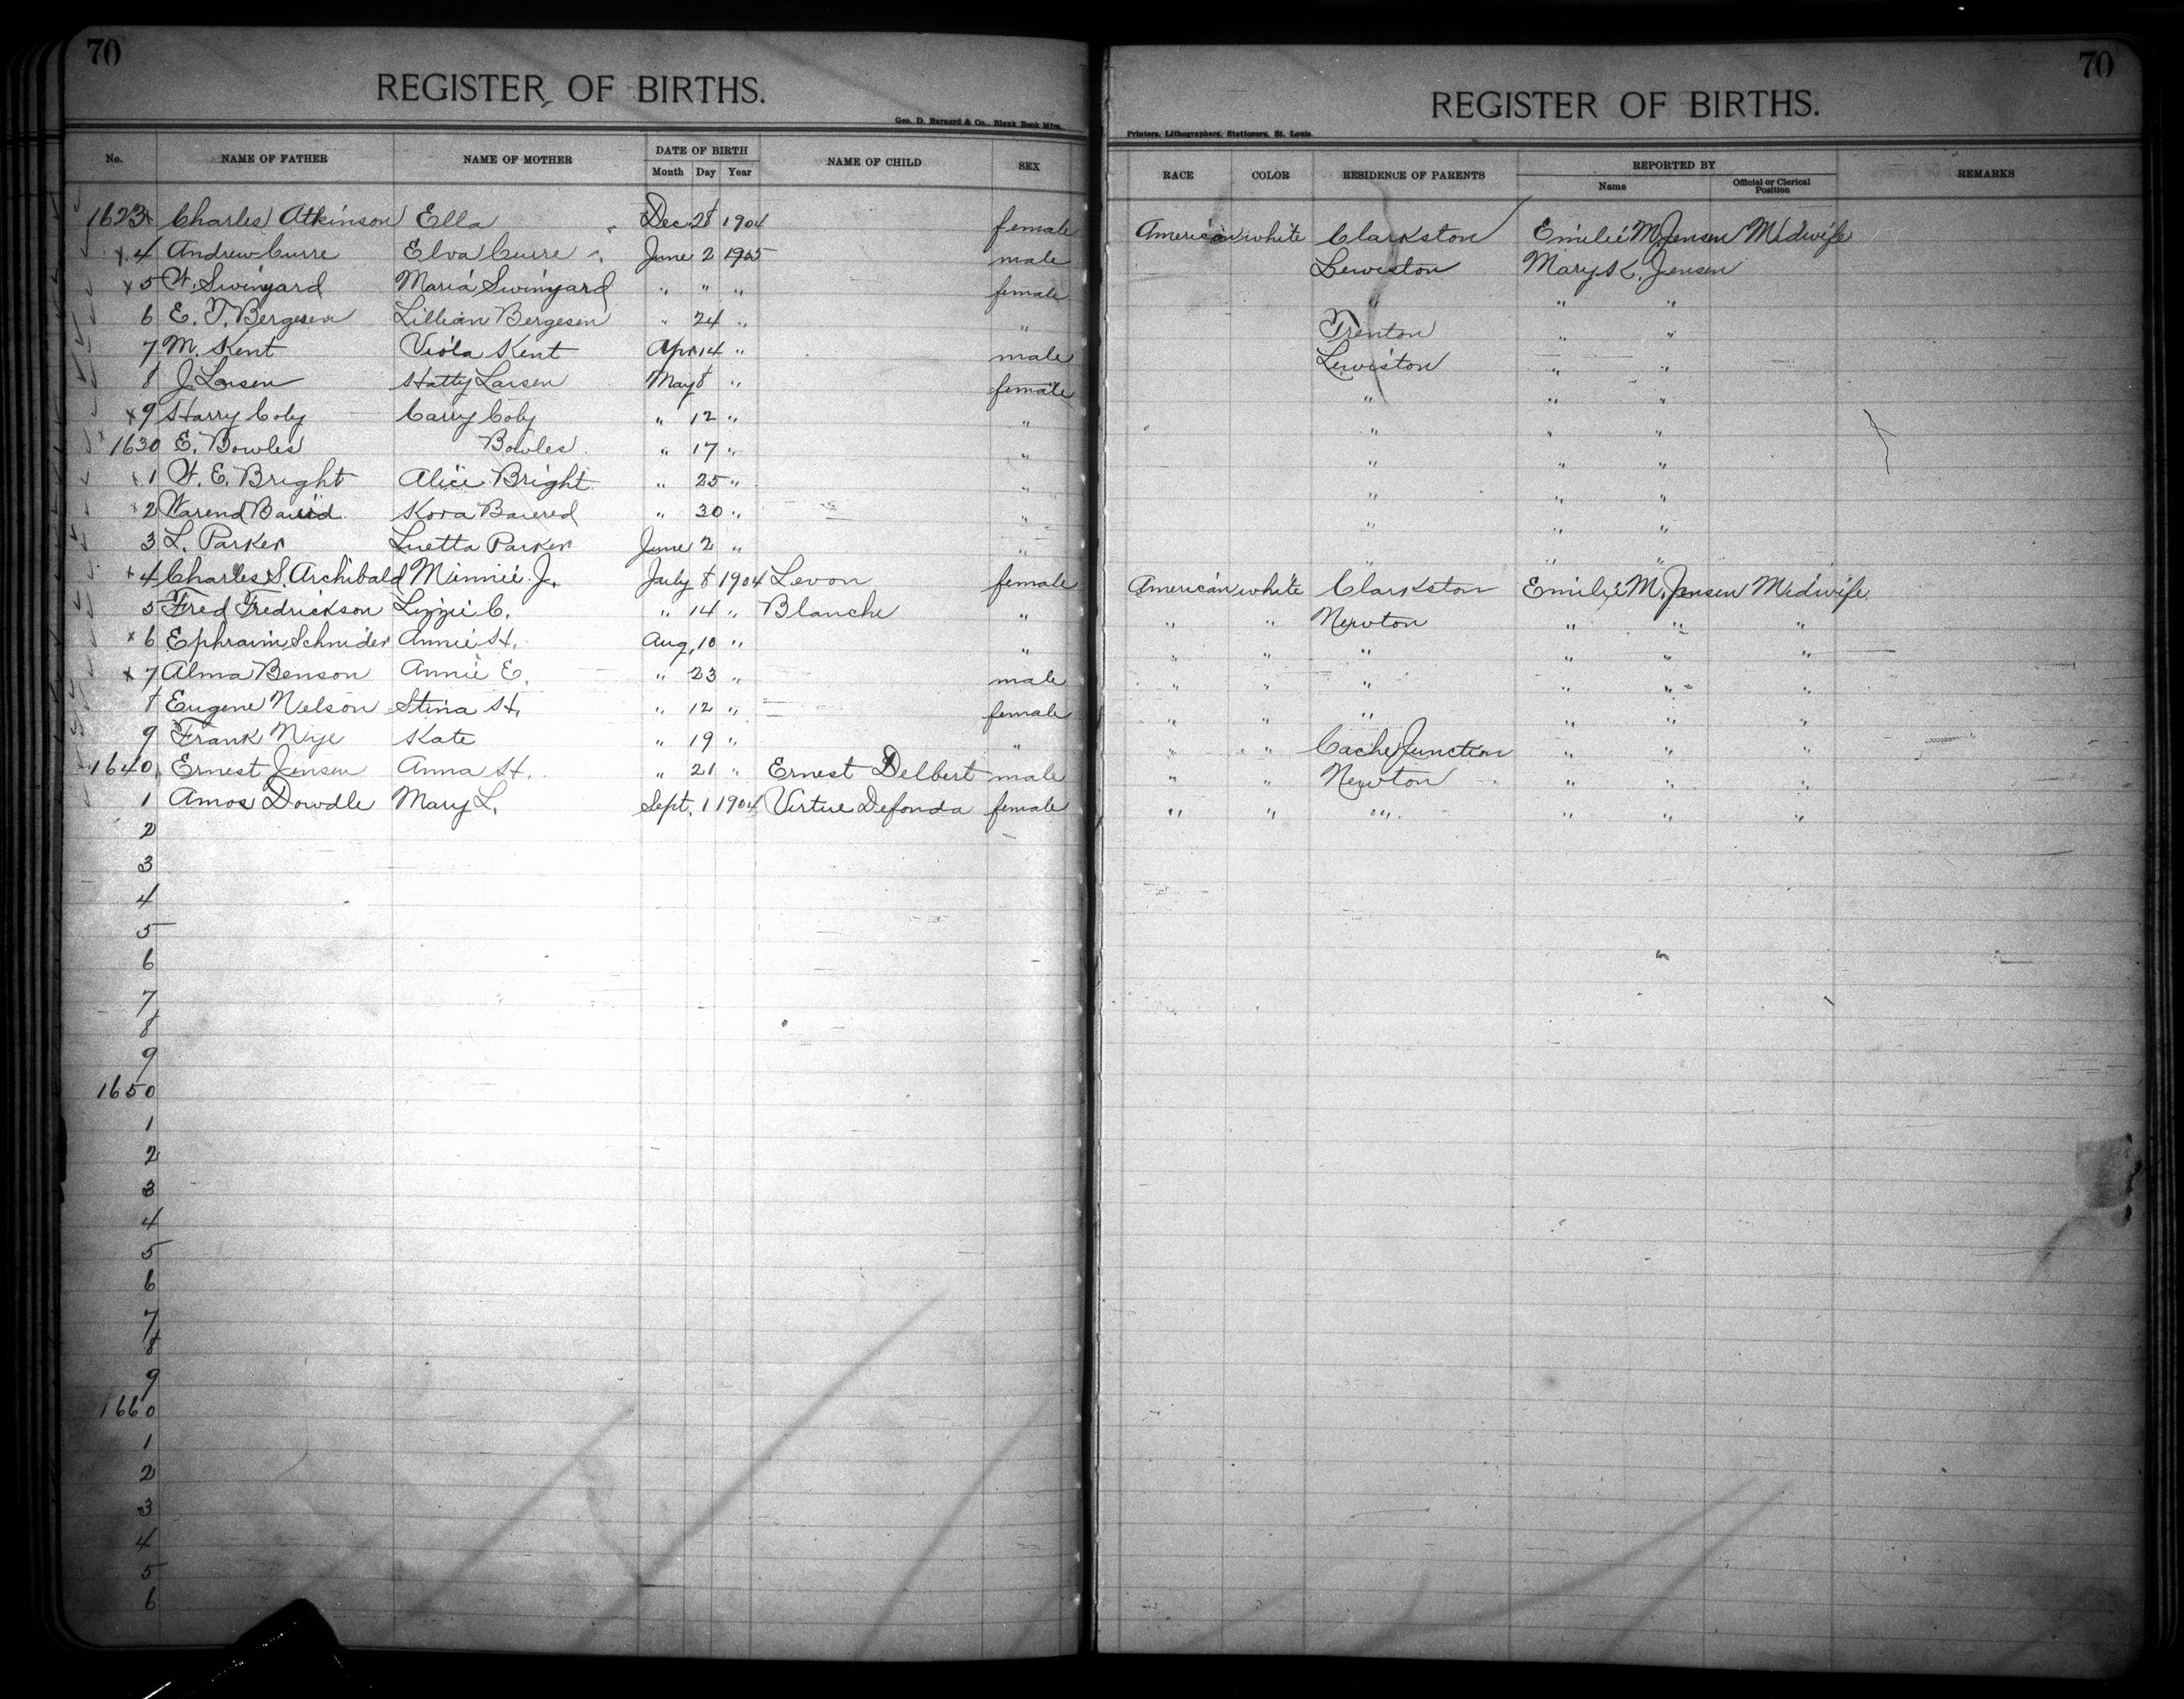 70
REGISTER OF BIRTHS.
Geo. D. Barnard & Co., Blank Book Mfrs.
No. NAME OF FATHER NAME OF MOTHER DATE OF BIRTH Month Day Year NAME OF CHILD SEX
1623 x Charles Atkinson Ella Dec. 28 1904 female
x 4 Andrew Curre Elva Curre June 2 1905 male
x 5 W. Swinyard Maria Swinyard " " " female
6 E. T. Bergesen Lillian Bergesen " 24 " "
7 M. Kent Viola Kent Apr. 14 " male
8 J. Larsen Hatty Larsen May 8 " female
x 9 Harry Coly Carry Coly " 12 " "
1630 E. Bowles Bowles " 17 " "
x 1 W. E. Bright Alice Bright " 25 " "
x 2 Kora " 30 " "
3 L. Parker Luetta Parker June 2 " "
x 4 Charles S. Archibald Minnie J. July 8 1904 Levon female
5 Fred Fredrickson Lizzie C. " 14 " Blanche "
x 6 Ephraim Schnider Annie H. Aug. 10 " "
x 7 Alma Benson Annie E. " 23 " male
8 Eugene Nelson Stina H. " 12 " female
9 Frank Nye Kate " 19 " "
1640 Ernest Jensen Anna H. " 21 " Ernest Delbert male
1 Amos Dowdle Mary L. Sept. 1 1904 Virtue Defonda female
2
3
4
5
6
7
8
9
1650
1
2
3
4
5
6
7
8
9
1660
1
2
3
4
5
6
70
REGISTER OF BIRTHS.
Printers, Lithographers, Stationers, St. Louis.
RACE COLOR RESIDENCE OF PARENTS REPORTED BY Name Official or Clerical Position REMARKS
American white Clarkston Emilie M. Jensen Midwife
Lewiston Mary K. Jensen
" " "
Trenton " "
Lewiston " "
" " "
" " "
" " "
" " "
" " "
" " "
American white Clarkston Emilie M. Jensen Midwife
" " Newton " " "
" " " " " "
" " " " " "
" " " " " "
" " Cache Junction " " "
" " Newton " " "
" " " " " "